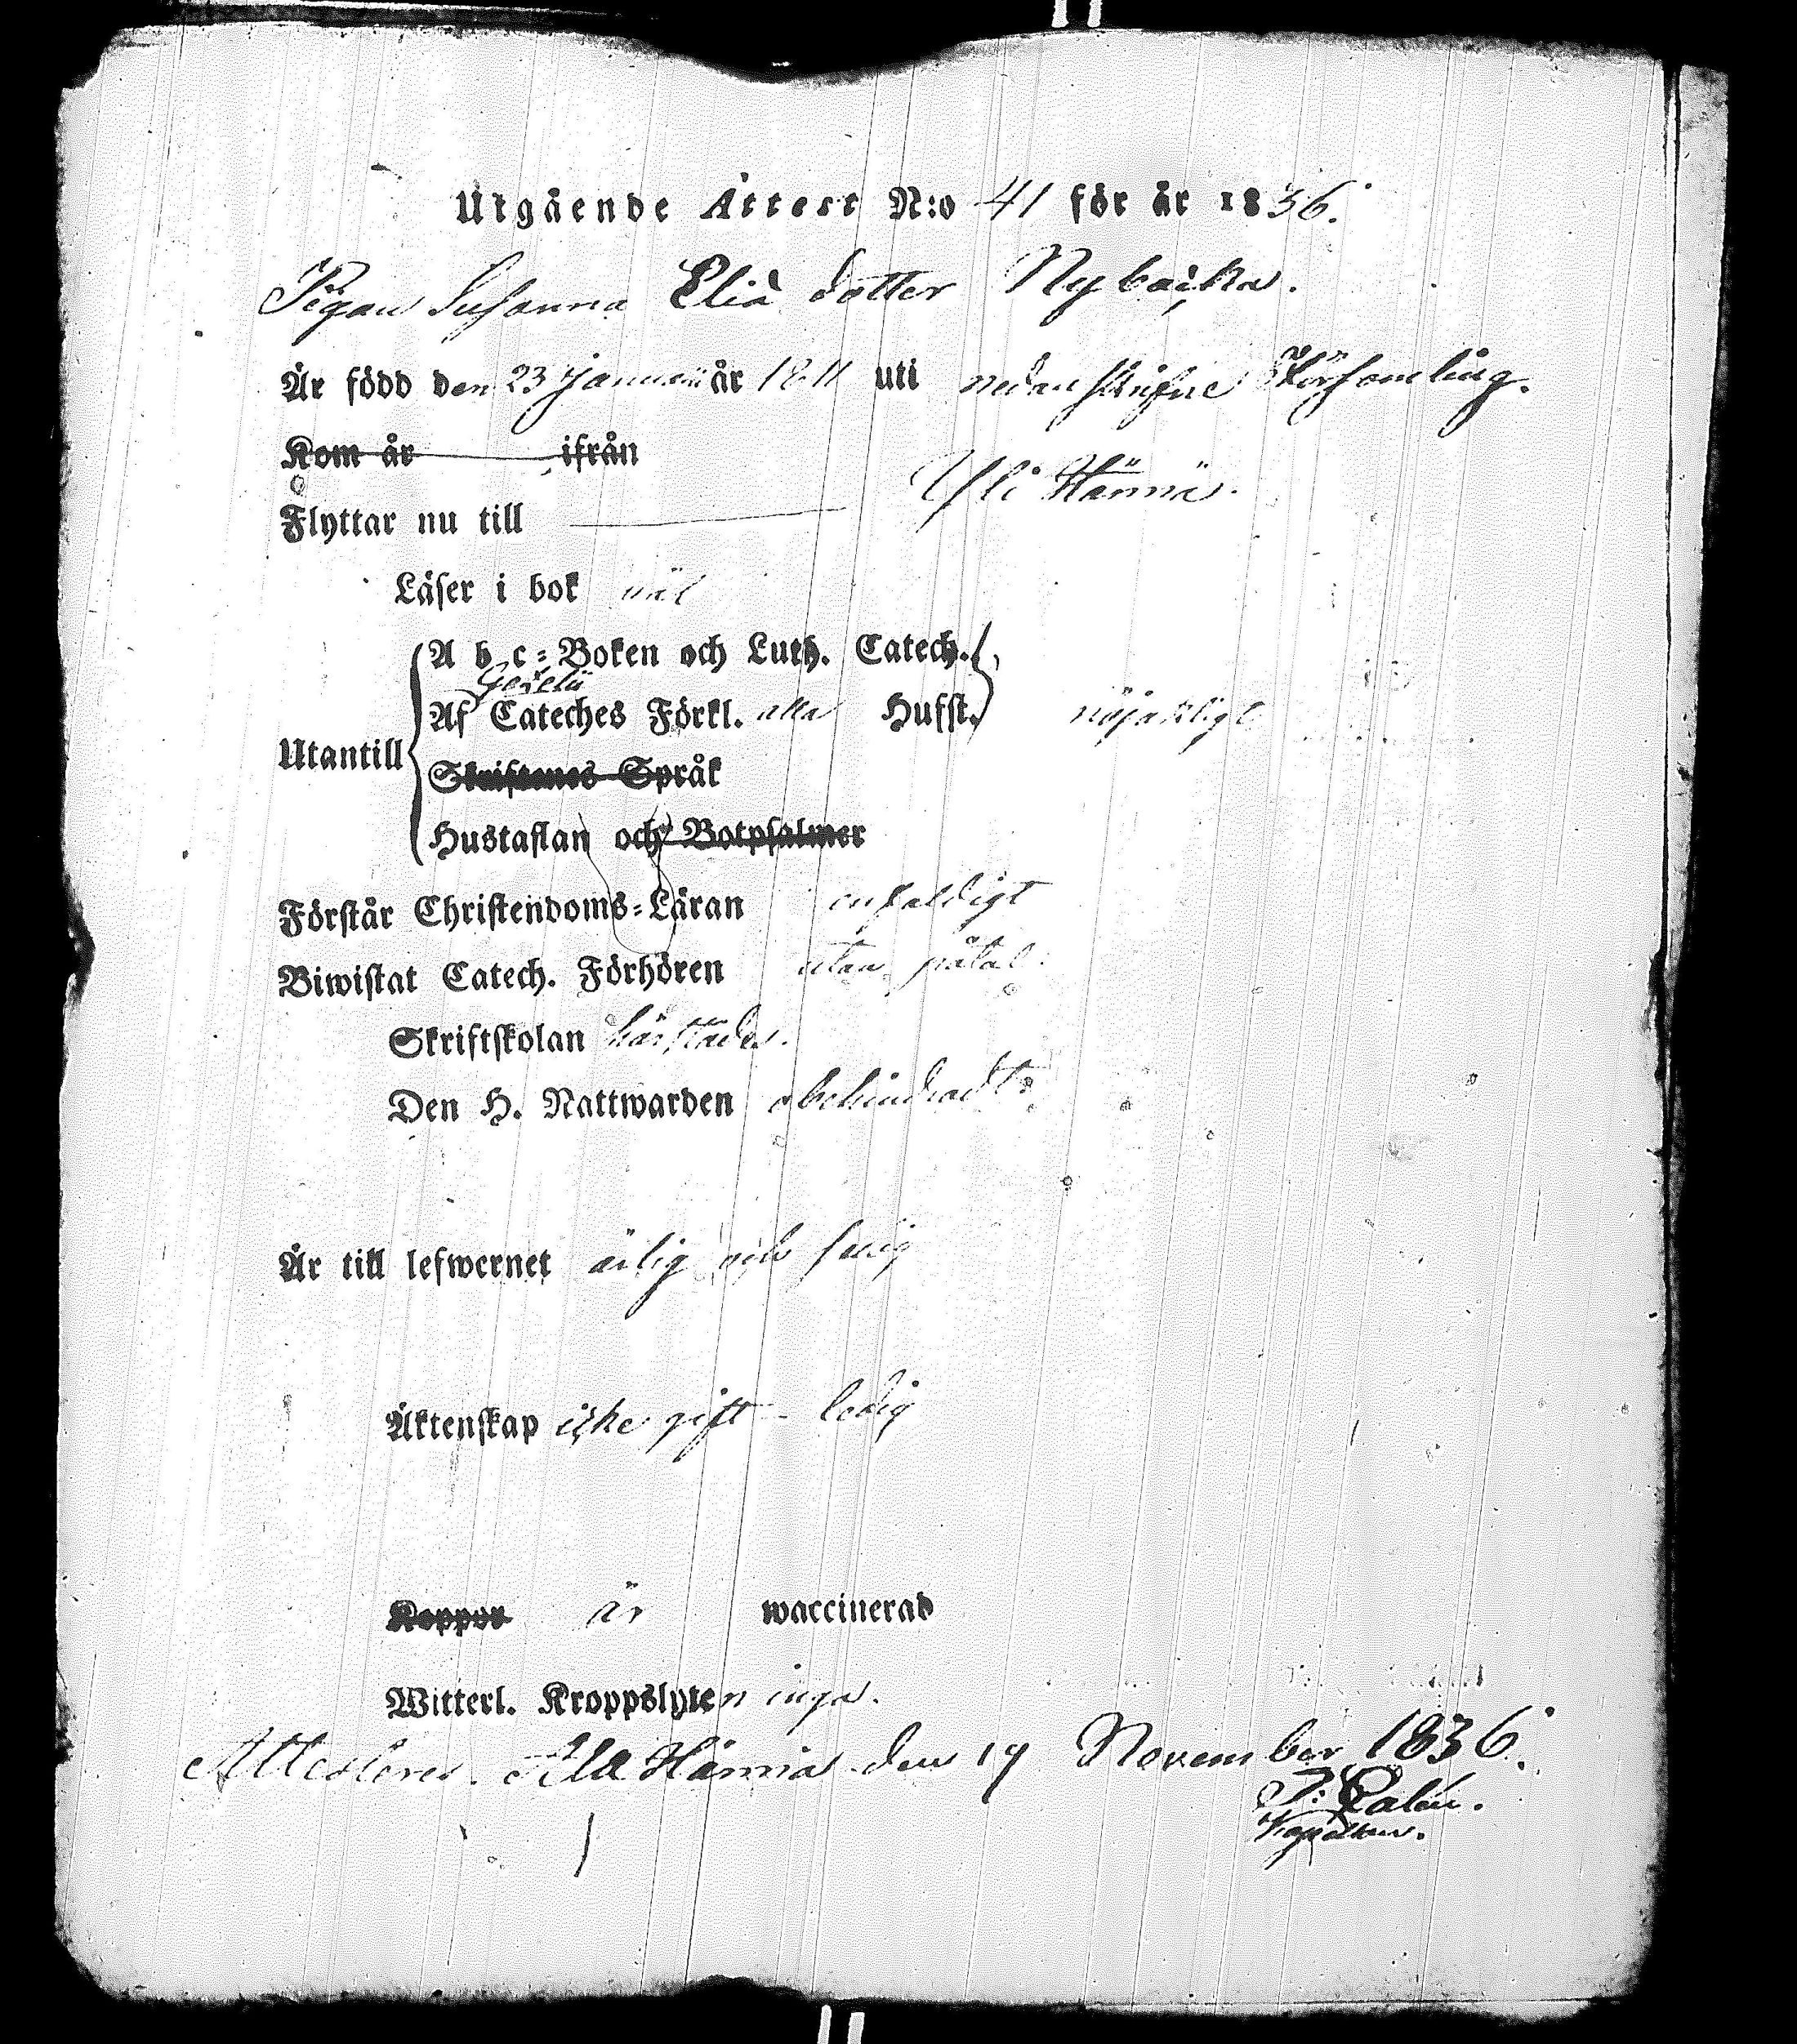 Utgående Attest N:o 41 för år 1836.
Pigan Susanna Eliä dotter Nybacka.
Är född den 23 Januarii år 1811 uti nedanskrifne Församling.
Kom år ifrån
Flyttar nu till Yli Härmä.
Läser i bok väl
A b c-Boken och Luth. Catech.
Gezelii
Af Cateches Förkl. alla Hufst. nöjaktligt
Utantill
Skriftenes Språk
Hustaflan och Botpsalmer
Förstår Christendoms-Läran enfaldigt
Biwistat Catech. Förhören utan påtal.
Skriftskolan härstädes.
Den H. Nattwarden obehindradt.
Är till lefwernet ärlig och
Äktenskap icke gift - ledig
Koppor är waccinerad
Witterl. Kroppslyten inga.
Attesterer. Ala Härmä den 19 November 1836.
Kapellan.